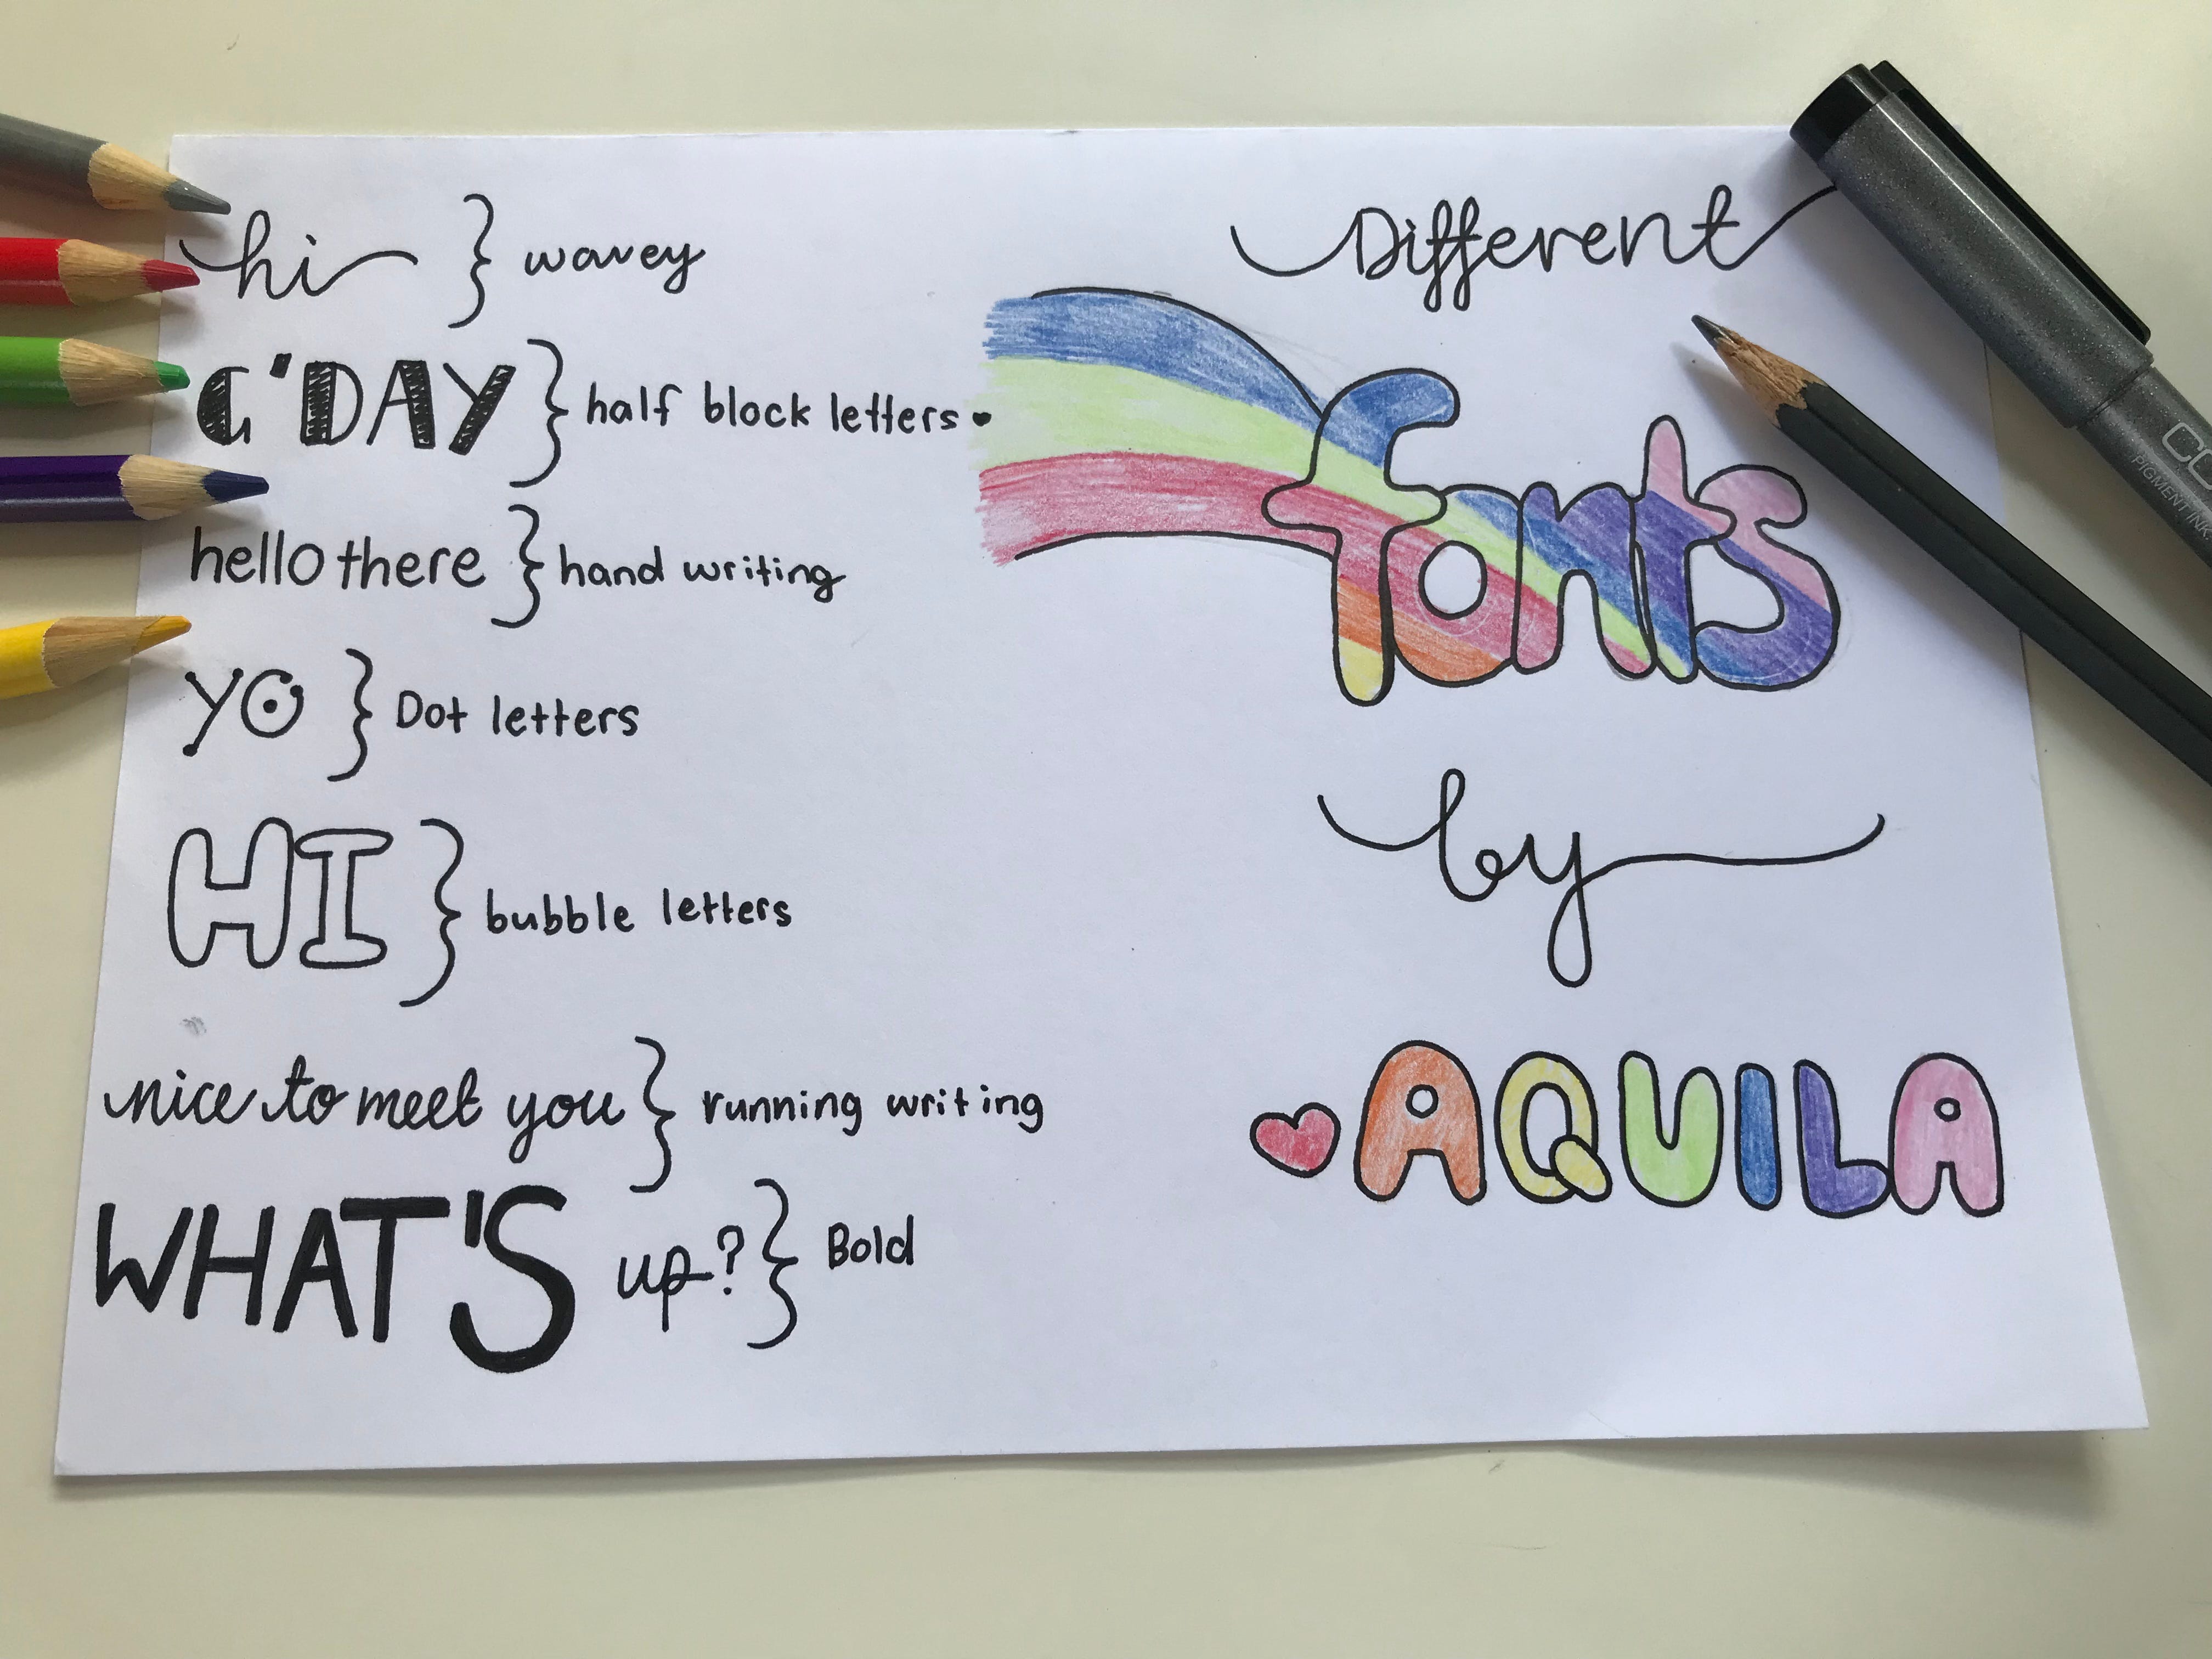 hi } wavey
G'DAY } half block letters.
hello there } hand writing
yo } Dot letters
HI } bubble letters
nice to meet you } running writing
WHAT'S up? } Bold
Different
fonts
by
AQUILA